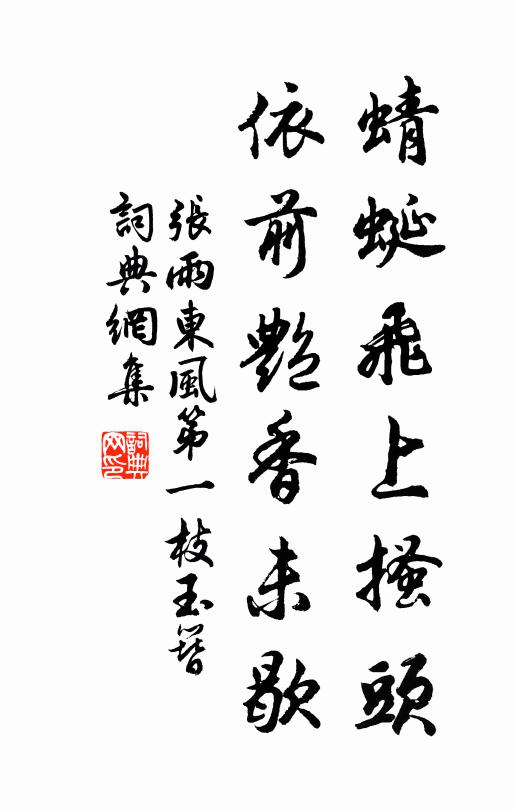 蜻蜓飛上搔頭
依前艷香未歇
張雨東風第一枝玉簪
詞典網集
詞典
网印